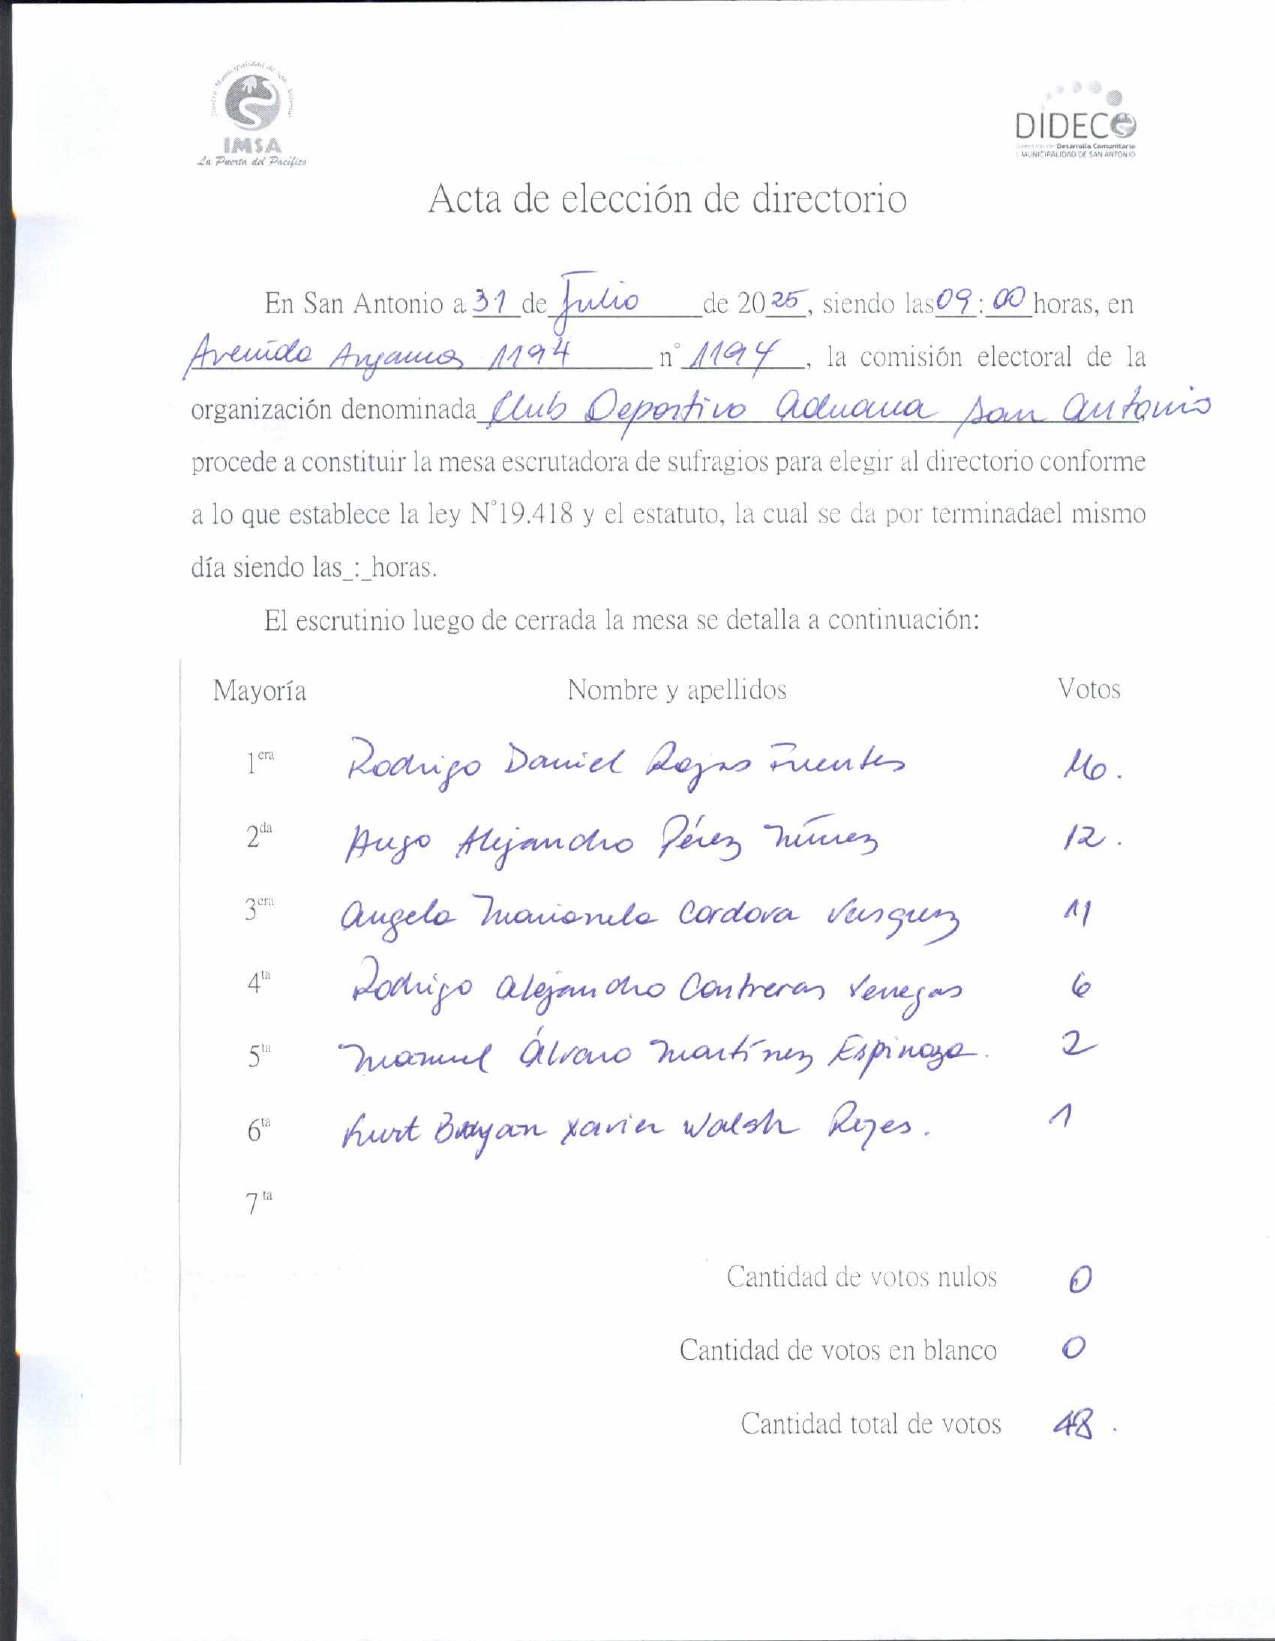 Ilustre Municipalidad de San Antonio
IMSA
La Puerta del Pacífico
DIDECO
Desarrollo Comunitario
MUNICIPALIDAD DE SAN ANTONIO
Acta de elección de directorio
En San Antonio a 31 de Julio de 2025, siendo las 09:00 horas, en
Avenida Angamos 1194 n° 1194, la comisión electoral de la
organización denominada Club Deportivo Aduana San Antonio
procede a constituir la mesa escrutadora de sufragios para elegir al directorio conforme
a lo que establece la ley N°19.418 y el estatuto, la cual se da por terminadael mismo
día siendo las_:_horas.
El escrutinio luego de cerrada la mesa se detalla a continuación:
Mayoría Nombre y apellidos Votos
1era Rodrigo Daniel Rojas Fuentes 16.
2da Hugo Alejandro Pérez Núñez 12.
3era Angela Marianela Cordova Vasquez 11
4ta Rodrigo Alejandro Contreras Venegas 6
5ta Manuel Álvaro Martínez Espinoza. 2
6ta Kurt Bryan Xavier Walsh Reyes. 1
7ta
Cantidad de votos nulos 0
Cantidad de votos en blanco 0
Cantidad total de votos 48.